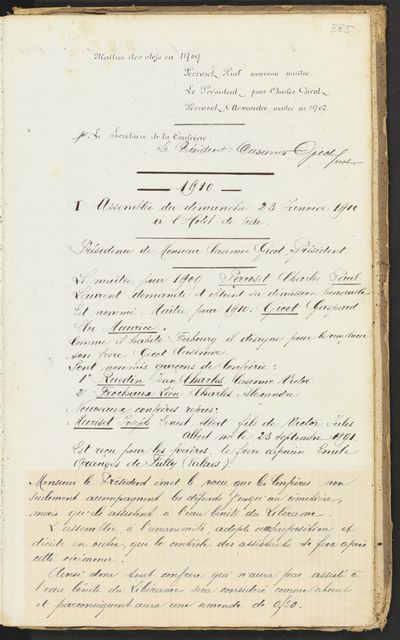 385
Maîtres des clefs en 1909:
Perroset Paul nouveau maître.
Le Président, pour Charles Gicot.
Perroset, Alexandre, maître en 1907.
pr Le Secrétaire de la Confrérie:
Le Président: Casimir Gicot
1910
I Assemblée du dimanche 23 Janvier 1910
à l'Hôtel de Ville.
Présidence de Monsieur Casimir Gicot Président.
Le maître pour 1900 Perroset Charles Paul
Laurent demande et obtient sa démission honorable
Est nommé Maître pour 1910: Gicot Gaspard
Maurice.
Comme il habite Fribourg il désigne pour le remplacer
son frère Gicot Casimir
Sont nommés garçons de Confrérie:
1° Ruedin Jean Charles Casimir Victor
2° Frochaux Léon Charles Alexandre
Nouveaux confrères reçus:
Muriset Joseph Ernest Albert fils de Victor Jules
Albert né le 23 septembre 1891
Est reçu pour les prières, le frère capucin Emile
Granges de Fully (Valais)
Monsieur le Président émet le voeu que les Confrères non
seulement accompagnent les défunts jusqu'au cimetière,
mais qu'ils assistent à l'eau bénite du Libérame.
L'assemblée, à l'unanimité, adopte cette proposition et
décide en outre, que le contrôle des assistants se fera après
cette cérémonie.
Ainsi donc tout confrère qui n'aura pas assisté à
l'eau bénite du Libérame sera considéré comme absent
et par conséquent aura une amende de 0,50.